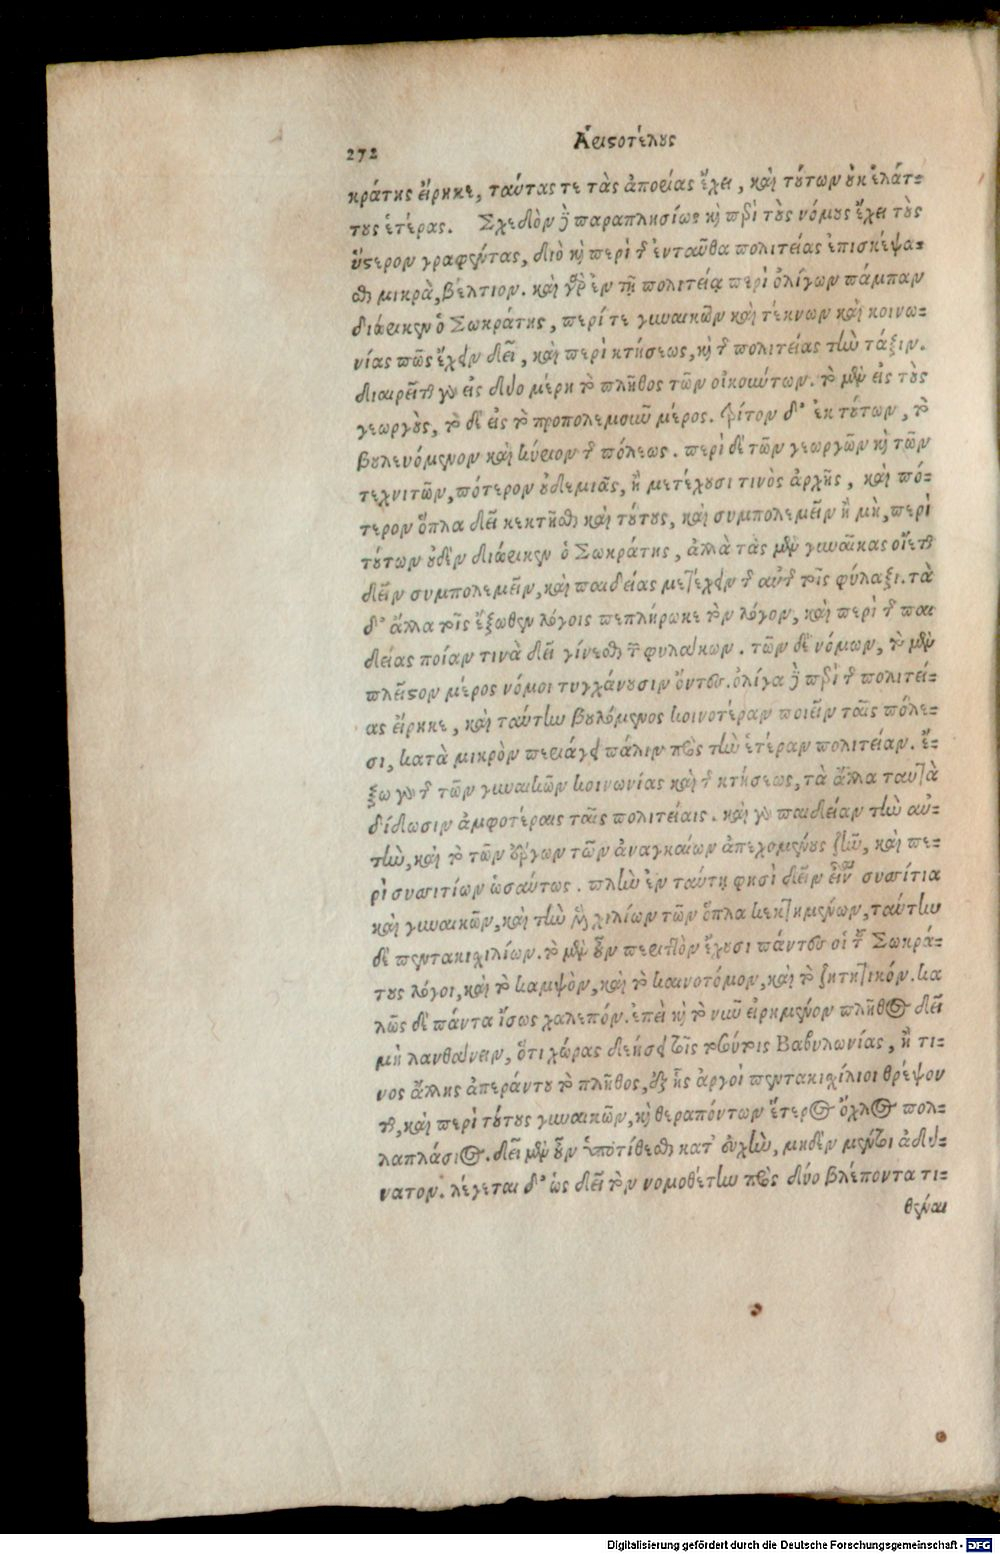 272
Ἀριστοτέλους
κράτης εἴρηκε, ταύτας τε τὰς ἀπορίας ἔχει, καὶ τούτων οὐκ ἐλάτ-
τους ἑτέρας. Σχεδὸν δὲ παραπλησίως καὶ περὶ τοὺς νόμους ἔχει τοὺς
ὕστερον γραφέντας, διὸ καὶ περὶ τῆς ἐνταῦθα πολιτείας ἐπισκέψα-
σθαι μικρὰ, βέλτιον. καὶ γὰρ ἐν τῇ πολιτείᾳ περὶ ὀλίγων πάμπαν
διώρικεν ὁ Σωκράτης, περί τε γυναικῶν καὶ τέκνων καὶ κοινω-
νίας πῶς ἔχειν δεῖ, καὶ περὶ κτήσεως, καὶ τῆς πολιτείας τὴν τάξιν.
διαιρεῖται γὰρ εἰς δύο μέρη τὸ πλῆθος τῶν οἰκούντων. τὸ μὲν εἰς τοὺς
γεωργοὺς, τὸ δὲ εἰς τὸ προπολεμοῦν μέρος. τρίτον δ' ἐκ τούτων, τὸ
βουλευόμενον καὶ κύριον τῆς πόλεως. περὶ δὲ τῶν γεωργῶν καὶ τῶν
τεχνιτῶν, πότερον οὐδεμιᾶς, ἢ μετέχουσι τινὸς ἀρχῆς, καὶ πό-
τερον ὅπλα δεῖ κεκτῆσθαι καὶ τούτους, καὶ συμπολεμεῖν ἢ μὴ, περὶ
τούτων οὐδὲν διώρικεν ὁ Σωκράτης, ἀλλὰ τὰς μὲν γυναῖκας οἴεται
δεῖν συμπολεμεῖν, καὶ παιδείας μετέχειν τῆς αὐτῆς τοῖς φύλαξι. τὰ
δ' ἄλλα τοῖς ἔξωθεν λόγοις πεπλήρωκε τὸν λόγον, καὶ περὶ τῆς παι
δείας ποίαν τινὰ δεῖ γίνεσθαι τῶν φυλάκων. τῶν δὲ νόμων, τὸ μὲν
πλεῖστον μέρος νόμοι τυγχάνουσιν ὄντες. ὀλίγα δὲ περὶ τῆς πολιτεί-
ας εἴρηκε, καὶ ταύτην βουλόμενος κοινοτέραν ποιεῖν ταῖς πόλε-
σι, κατὰ μικρὸν περιάγει πάλιν πρὸς τὴν ἑτέραν πολιτείαν. ἔ-
ξω γὰρ τῆς τῶν γυναικῶν κοινωνίας καὶ τῆς κτήσεως, τὰ ἄλλα ταυτὰ
δίδωσιν ἀμφοτέραις ταῖς πολιτείαις. καὶ γὰρ παιδείαν τὴν αὐ-
τὴν, καὶ τὸ τῶν ἔργων τῶν ἀναγκαίων ἀπεχομένους ζῆν, καὶ πε-
ρὶ συσσιτίων ὡσαύτως. πλὴν ἐν ταύτῃ φησὶ δεῖν εἶναι συσσίτια
καὶ γυναικῶν, καὶ τὴν μὲν χιλίων τῶν ὅπλα κεκτημένων, ταύτην
δὲ πεντακισχιλίων. τὸ μὲν οὖν περιττὸν ἔχουσι πάντες οἱ τοῦ Σωκρά-
τους λόγοι, καὶ τὸ κομψὸν, καὶ τὸ καινοτόμον, καὶ τὸ ζητητικόν. κα
λῶς δὲ πάντα ἴσως χαλεπόν. ἐπεὶ καὶ τὸ νῦν εἰρημένον πλῆθος δεῖ
μὴ λανθάνειν, ὅτι χώρας δεήσει τοῖς τοσούτοις Βαβυλωνίας, ἤ τι-
νος ἄλλης ἀπεράντου τὸ πλῆθος, ἐξ ἧς ἀργοὶ πεντακισχίλιοι θρέψον
ται, καὶ περὶ τούτους γυναικῶν, καὶ θεραπόντων ἕτερος ὄχλος πολ-
λαπλάσιος. δεῖ μὲν οὖν ὑποτίθεσθαι κατ' εὐχὴν, μηδὲν μέντοι ἀδύ-
νατον. λέγεται δ' ὡς δεῖ τὸν νομοθέτην πρὸς δύο βλέποντα τι-
θέναι
Digitalisierung gefördert durch die Deutsche Forschungsgemeinschaft - DFG